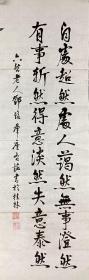 自處超然處人藹然無事澄然
有事斬然得意淡然失意泰然
老人鄧 書於桂林